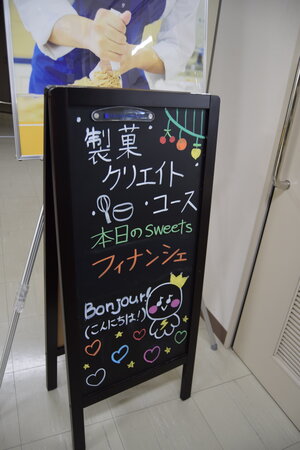 製菓
クリエイト
コース
本日のsweets
フィナンシェ
Bonjour!
(こんにちは!)